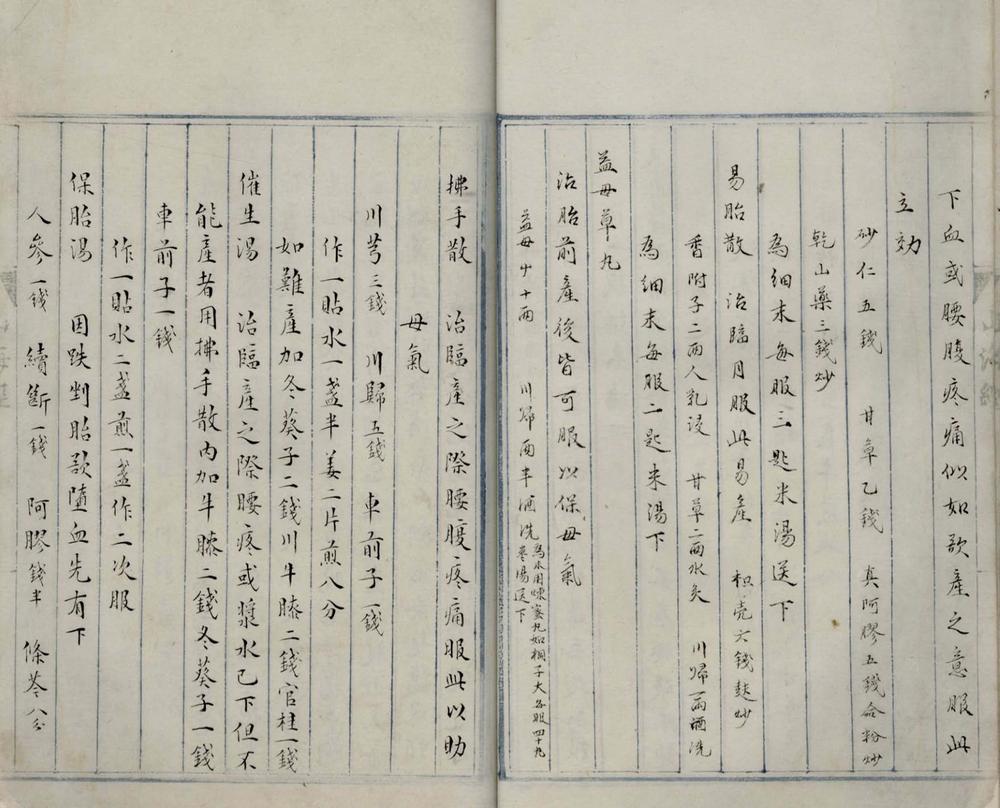 下血或腰腹疼痛似如欲產之意服此
立効
砂仁五錢 甘草乙錢 真阿膠五錢合粉炒
乾山藥三錢炒
為細末每服三匙米湯送下
易胎散 治臨月服此易產 枳壳六錢麸炒
香附子二兩人乳浸 甘草二兩水炙 川歸兩酒洗
為細末每服二匙米湯下
益母草丸
治胎前產後皆可服以保母氣
益母廿十兩 川歸兩半酒洗 為末用煉蜜丸如梧子大各服四十丸
棗湯送下
拂手散 治臨產之際腰腹疼痛服此以助
母氣
川芎三錢 川歸五錢 車前子一錢
作一貼水一盞半姜二片煎八分
如難產加冬葵子二錢川牛膝二錢官桂一錢
催生湯 治臨產之際腰疼或漿水已下但不
能產者用拂手散內加牛膝二錢冬葵子一錢
車前子一錢
作一貼水二盞煎一盞作二次服
保胎湯 因跌剉胎欲墮血先有下
人參一錢 續斷一錢 阿膠錢半 條芩八分